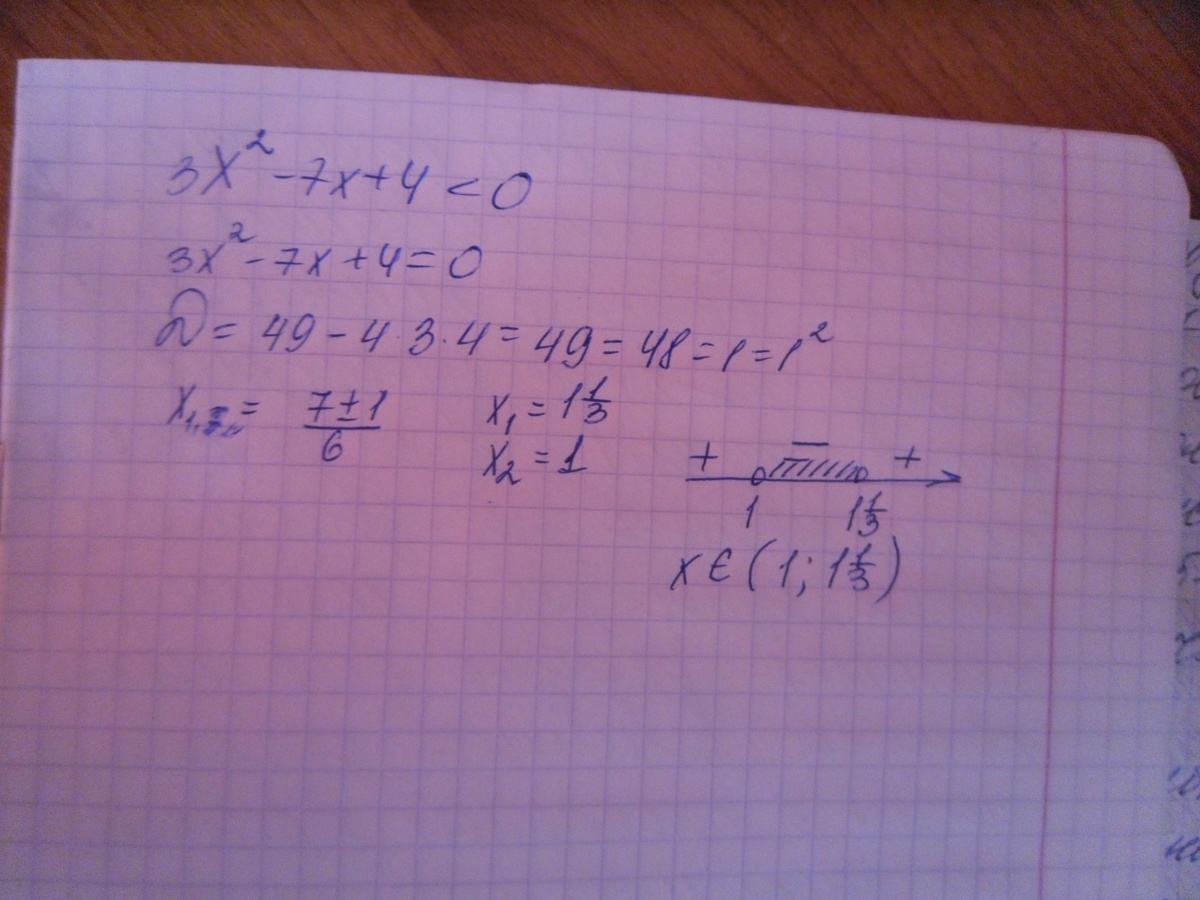 3x² - 7x + 4 < 0
3x² - 7x + 4 = 0
D = 49 - 4·3·4 = 49 = 48 = 1 = 1²
x₁, = 7±1/6 x₁ = 1 1/3
x₂ = 1
+ − +
1 1 1/3
x ∈ (1; 1 1/3)